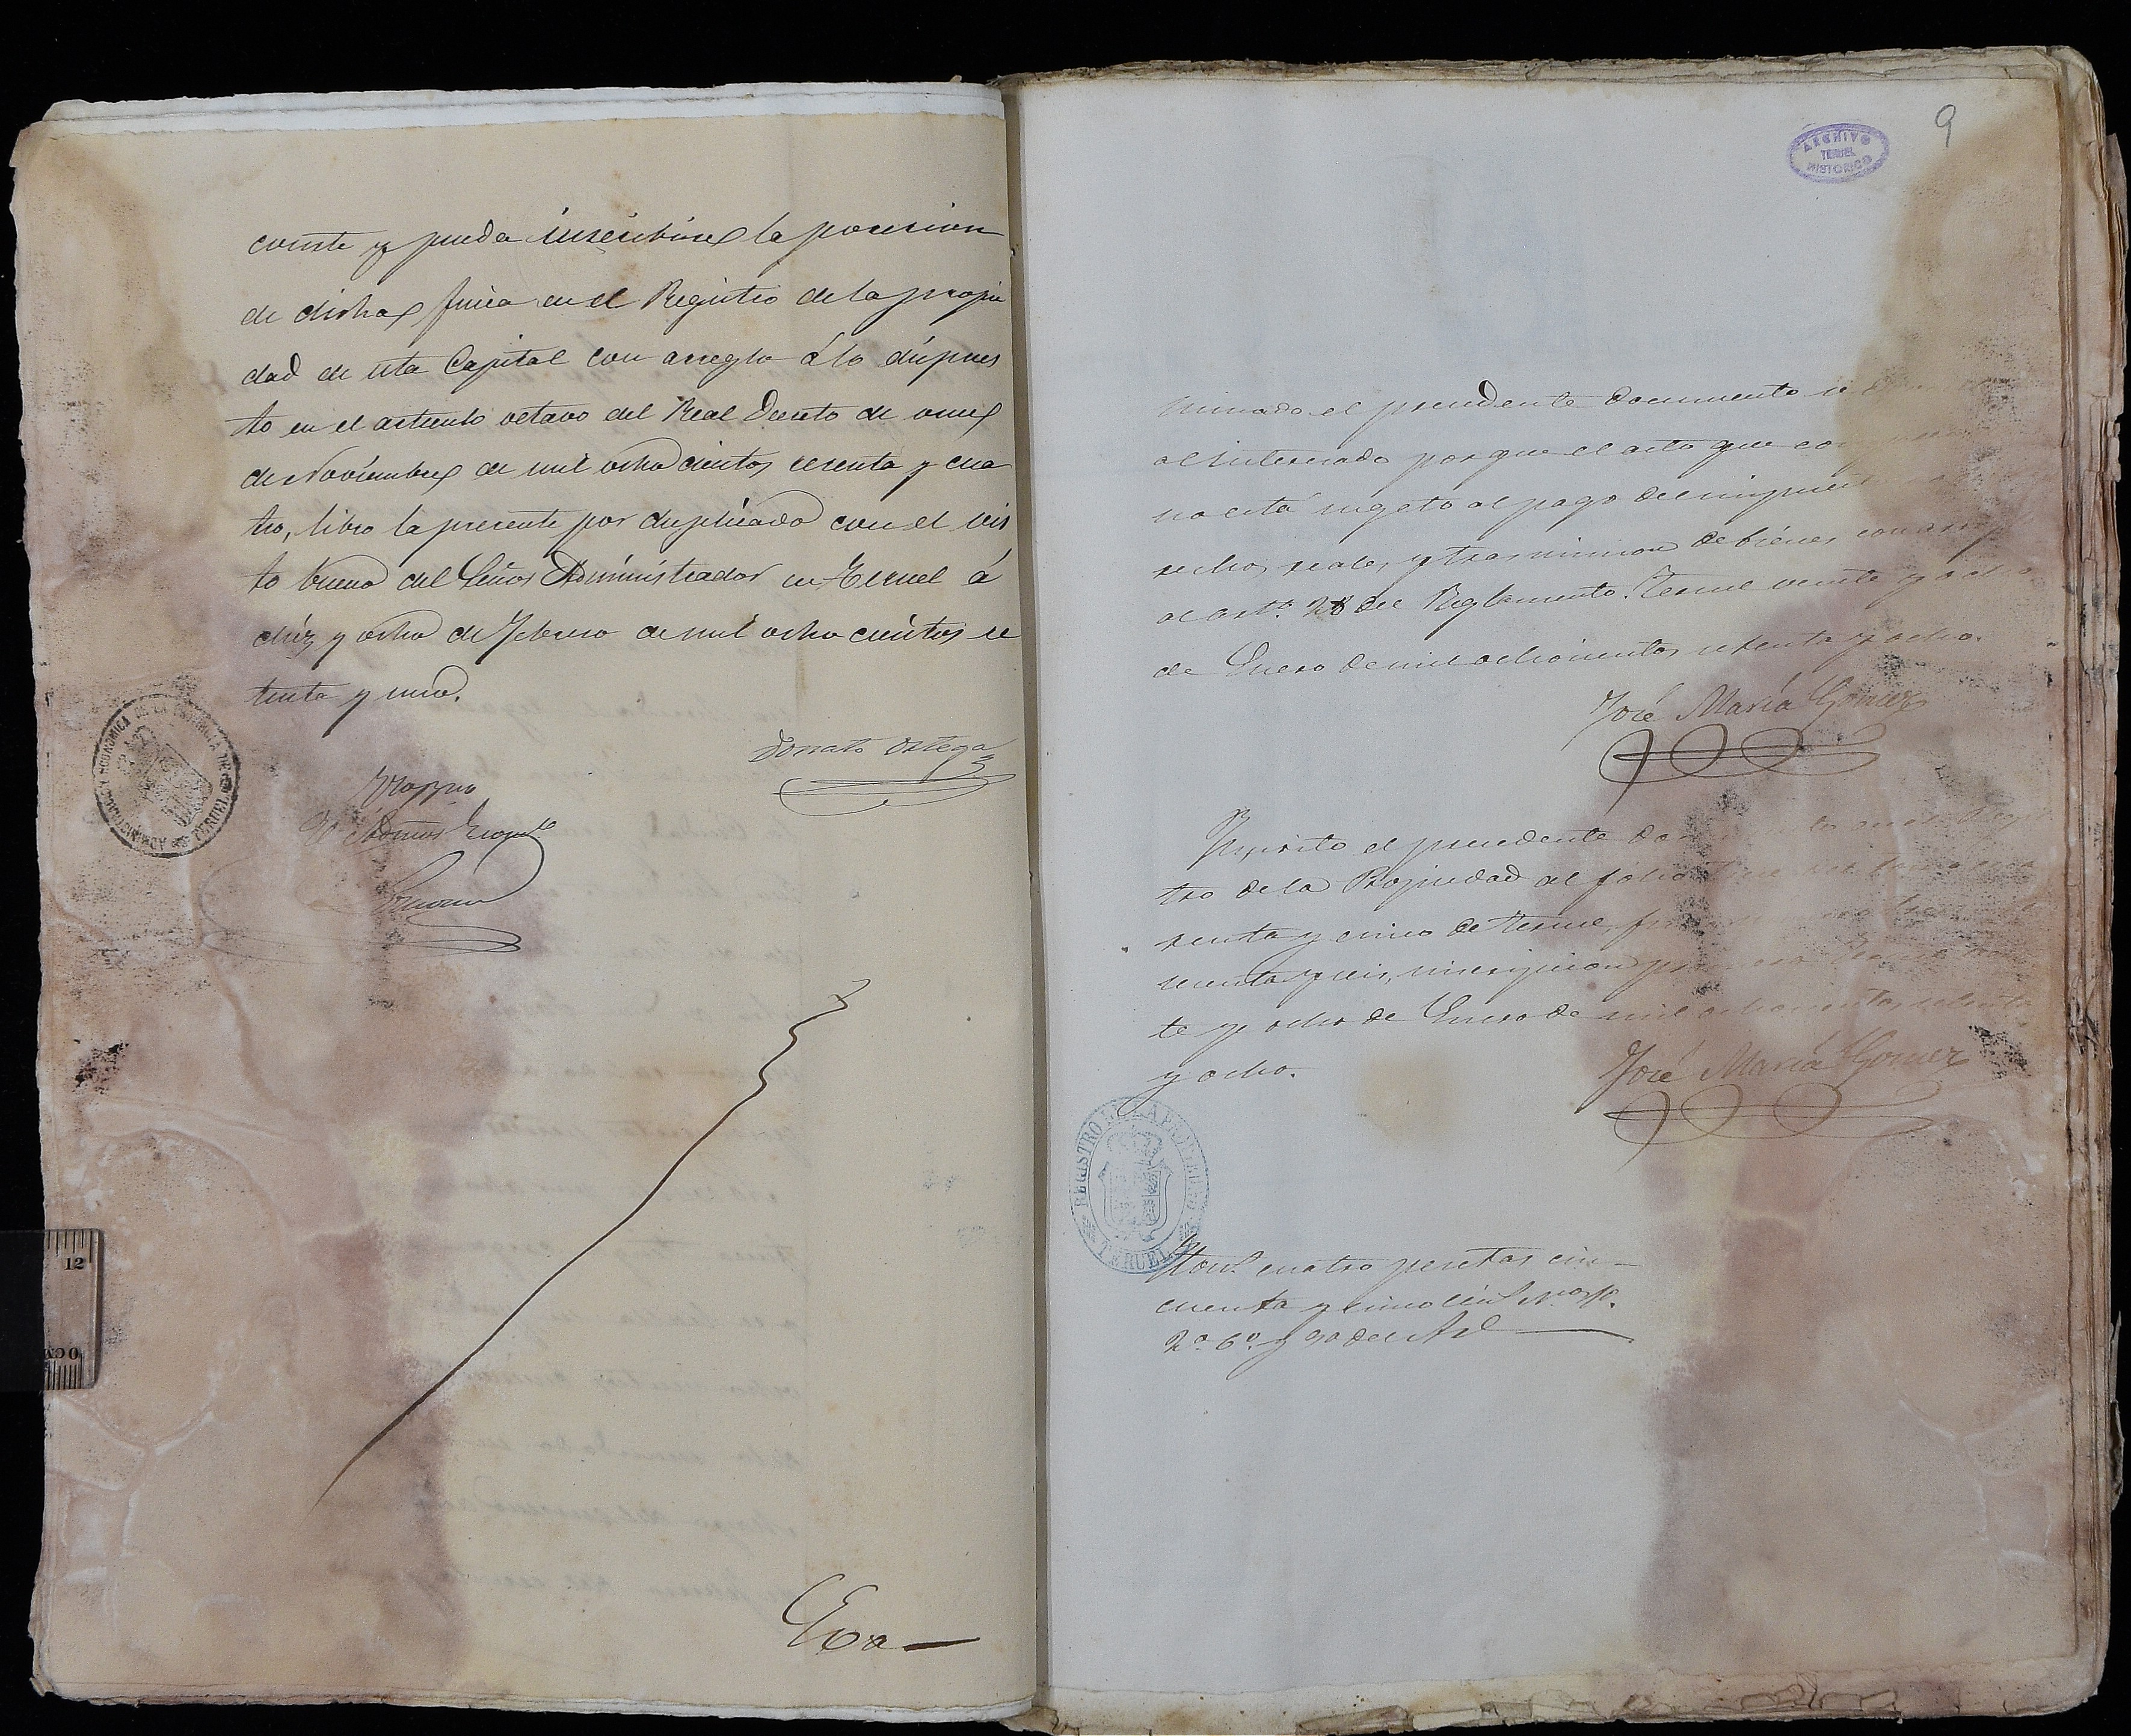 conste y pueda inscribirse la posesion
de dicha finca en el Registro de la propie
dad de esta Capital con arreglo á lo dispues
to en el articulo octavo del Real Decreto de once
de Noviembre de mil ochocientos sesenta y cua
tro, libro la presente por duplicado con el vis
to bueno del Señor Administrador en Teruel á
diez y ocho de Febrero de mil ochocientos se
tenta y uno.
Donato Ortega
ADMINISTRACION ECONOMICA DE LA PROVINCIA DE TERUEL
Exa
9
ARCHIVO
TERUEL
HISTORICO
minado el precedente documento se
al interesado porque el acto que
no está sugeto al pago del impuest
rechos reales y trasmision de bienes con arreglo
al artº. 28 del Reglamento. Teruel veinte y ocho
de Enero de mil ochocientos setenta y ocho.
José María Gomez
el precedente documento en el Regis
tro de la Propiedad al folio
renta y cinco de Teruel, finca
senta y seis, inscripcion primera. Teruel vein
te y ocho de Enero de mil ochocientos setenta
y ocho.
José María Gomez
REGISTRO DE LA PROPIEDAD TERUEL
Honˢ. cuatro pesetas cin-
cuenta y cinco cént Nºs
2º. 6º. y 9º del Arl